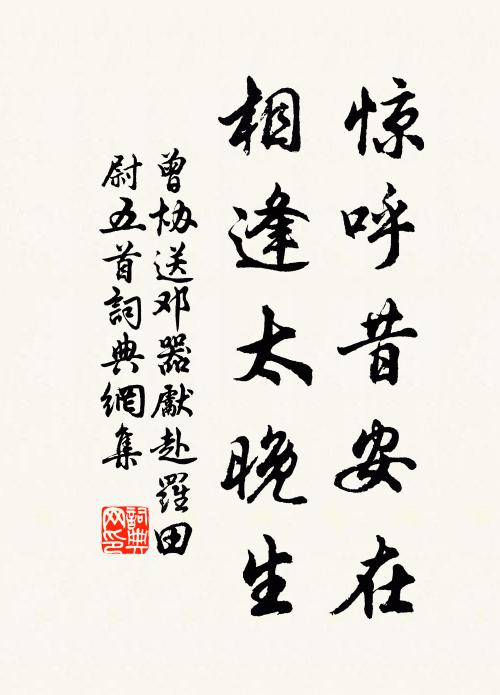 惊呼昔安在
相逢太晚生
曾协送邓器獻赴羅田
尉五首詞典網集
詞典
网印